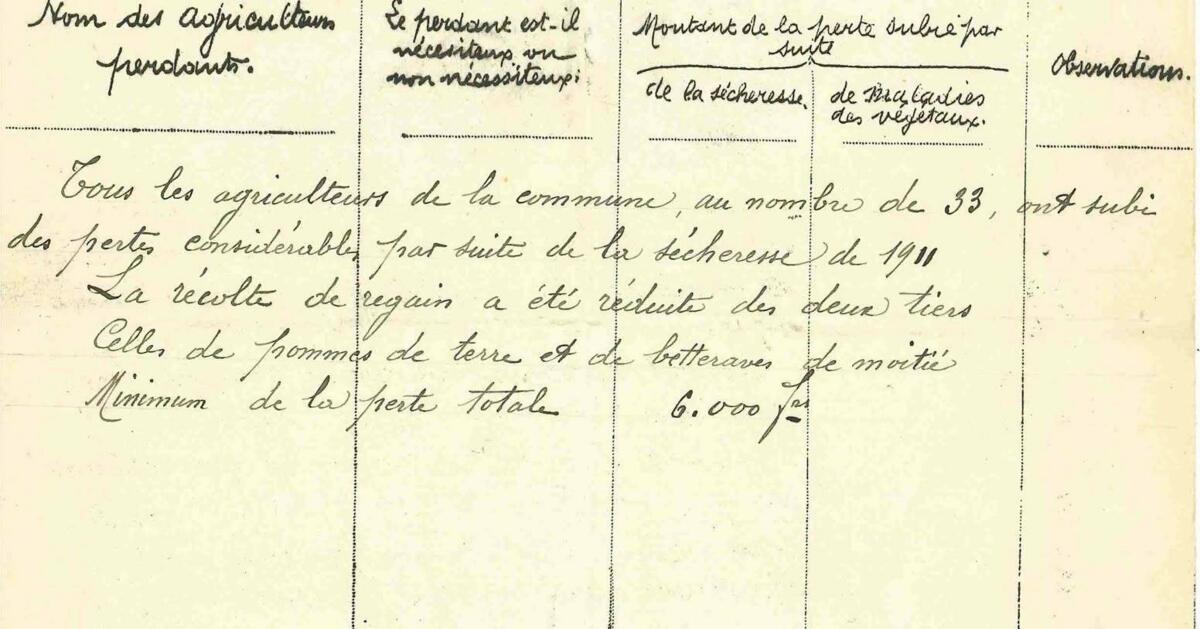 Nom des agriculteurs
perdants.
Le perdant est-il
nécessiteux ou
non nécessiteux:
Montant de la perte subie par
suite
de la sécheresse.
de Maladies
des végétaux.
Observations.
Tous les agriculteurs de la commune, au nombre de 33, ont subi
des pertes considérables par suite de la sécheresse de 1911
La récolte de regain a été réduite des deux tiers
Celles de pommes de terre et de betteraves de moitié
Minimum de la perte totale 6.000 frs